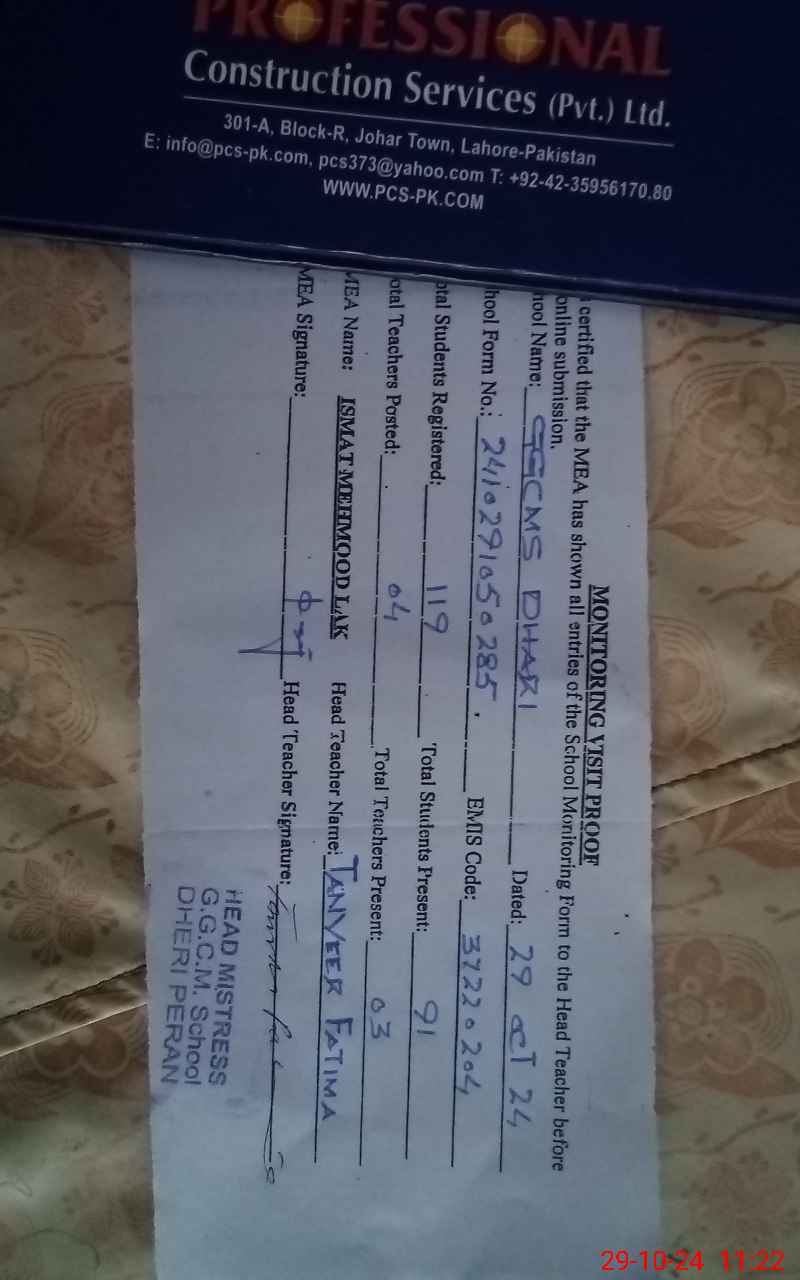 PROFESSIONAL
Construction Services (Pvt.) Ltd.
301-A, Block-R, Johar Town, Lahore-Pakistan
E: info@pcs-pk.com, pcs373@yahoo.com T: +92-42-35956170.80
WWW.PCS-PK.COM
MONITORING VISIT PROOF
certified that the MEA has shown all entries of the School Monitoring Form to the Head Teacher before
online submission.
hool Name: GGCMS DHARI Dated: 29 OCT 24
hool Form No.: 241029105 0285. EMIS Code: 37220204
otal Students Registered: 119 Total Students Present: 91
otal Teachers Posted: 04 Total Teachers Present: 03
MEA Name: ISMAT MEHMOOD LAK Head Teacher Name: TANVEER FATIMA
MEA Signature: Head Teacher Signature:
HEAD MISTRESS
G.G.C.M. School
DHERI PERAN
29-10-24 11:22